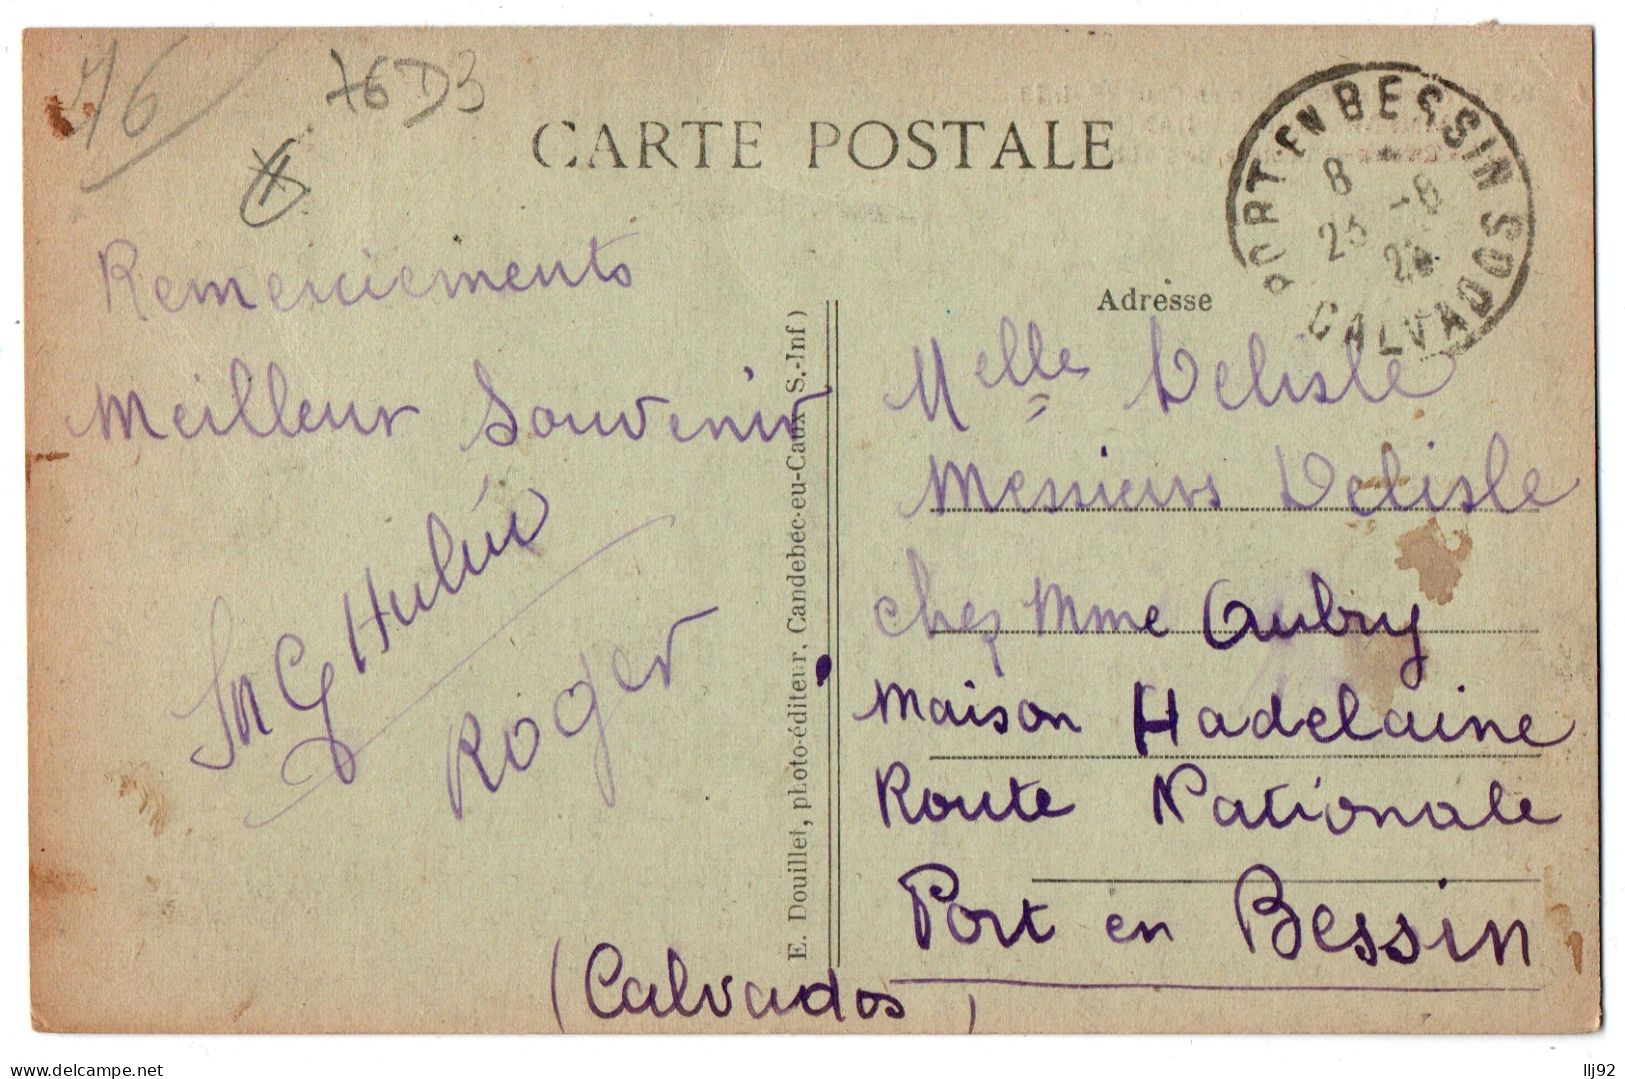 76D3
CARTE POSTALE
PORT EN BESSIN
8
23 -8
CALVADOS
Remerciements
Meilleur Souvenir
Roger
E. Douillet, photo-éditeur, Candebec-eu-Caux S.-Inf)
Adresse
Melle Delisle
Messieurs Delisle
chez Mme Aubry
Maison Hadelaine
Route Nationale
Port en Bessin
(Calvados)
delcampe.net
llj92